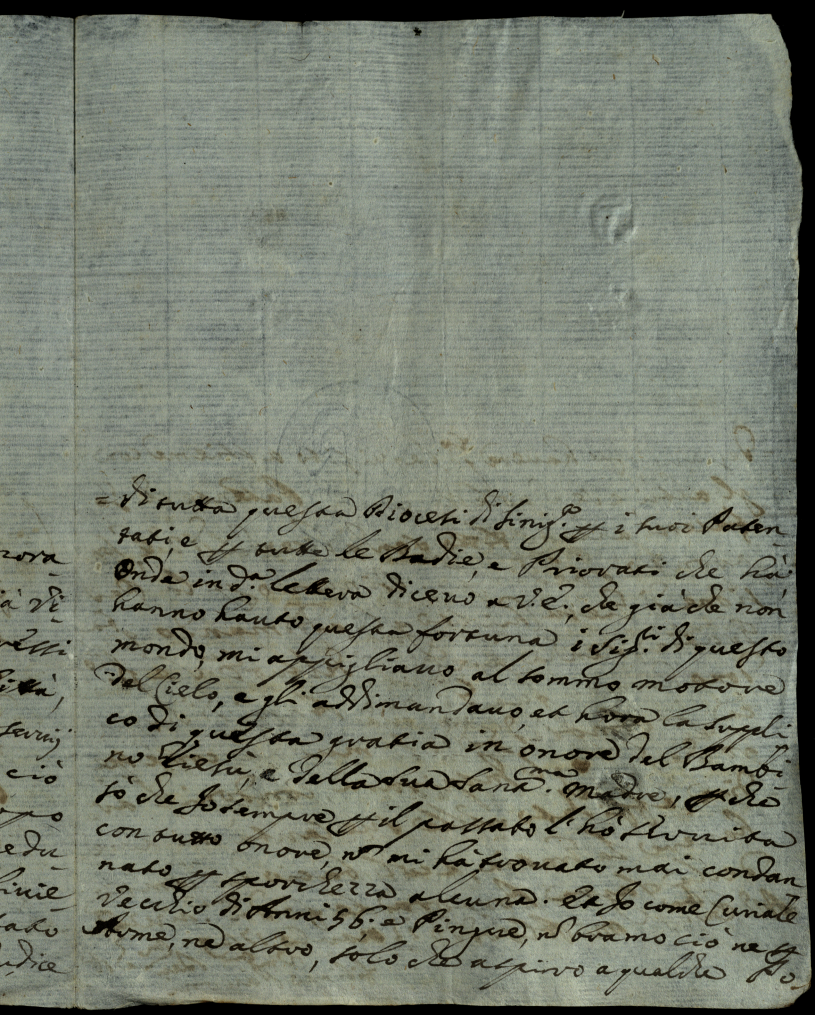 = di tutta questa Diocesi di Sinig.a p i suoi Paten-
tati, e p tutte le Badie, e Priorati che hà.
Onde in d.a lettera dicevo a V.E., che già che non
hanno hauto questa fortuna i Sig.ri di questo
mondo, mi appigliavo al sommo motore
del Cielo, e gli addimandavo, et hora la suppli
co di questa gratia in onore del Bambi
no Giesù, e della sua Sant.ma Madre, p che
sò che Io sempre p il passato l'hò servita
con tutto onore, nō mi hà trovato mai condan
nato p sporchezza alcuna. Et Io come Curiale
Vecchio di Anni 56. e Pingue, nō bramo ciò ne p
fume, ne altro, solo che aspiro a qualche
nora
ià Vi-
ressi
ità,
servij
ciò
opo
e du-
Civie-
tato
udice